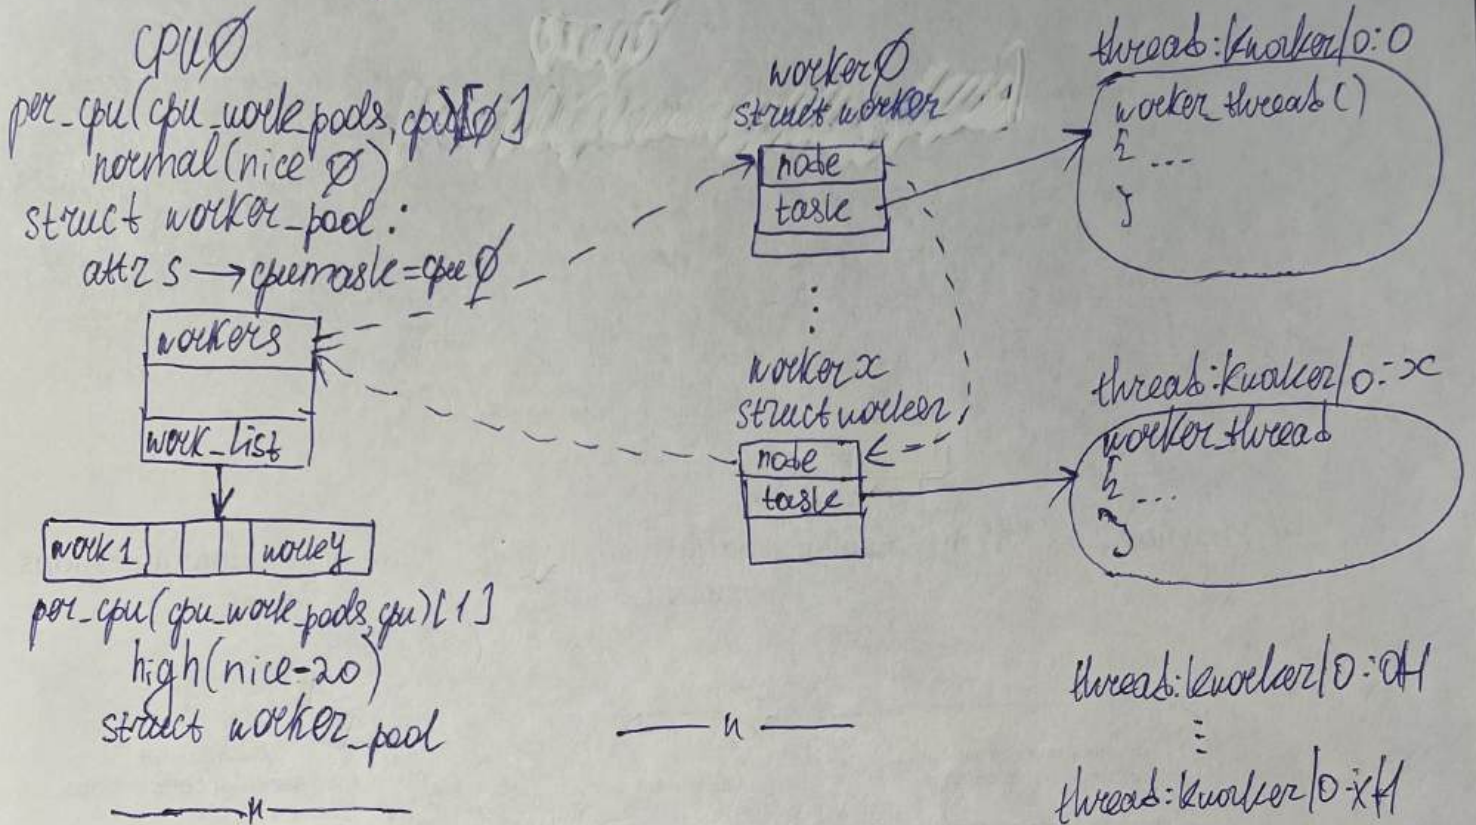 cpu0
per_cpu(cpu_work_pools, cpu)[0]
normal(nice 0)
struct worker_pool:
attrs → cpumask=cpu 0
workers
work_list
work1
worky
per_cpu(cpu_work_pools, cpu)[1]
high(nice-20)
struct worker_pool
—— " ——
worker0
struct worker
node
task
⋮
workerx
struct worker
node
task
—— " ——
thread:kworker/0:0
worker_thread()
{ ...
}
thread:kworker/0:x
worker_thread
{ ...
}
thread:kworker/0:0H
⋮
thread:kworker/0:xH